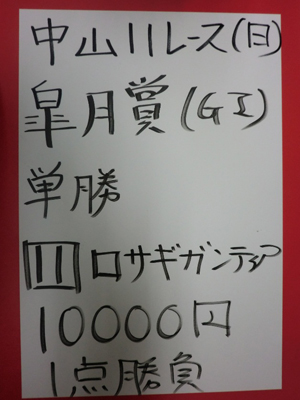 中山11レース(日)
皐月賞(GI)
単勝
11 ロサギガンティア
10000円
1点勝負